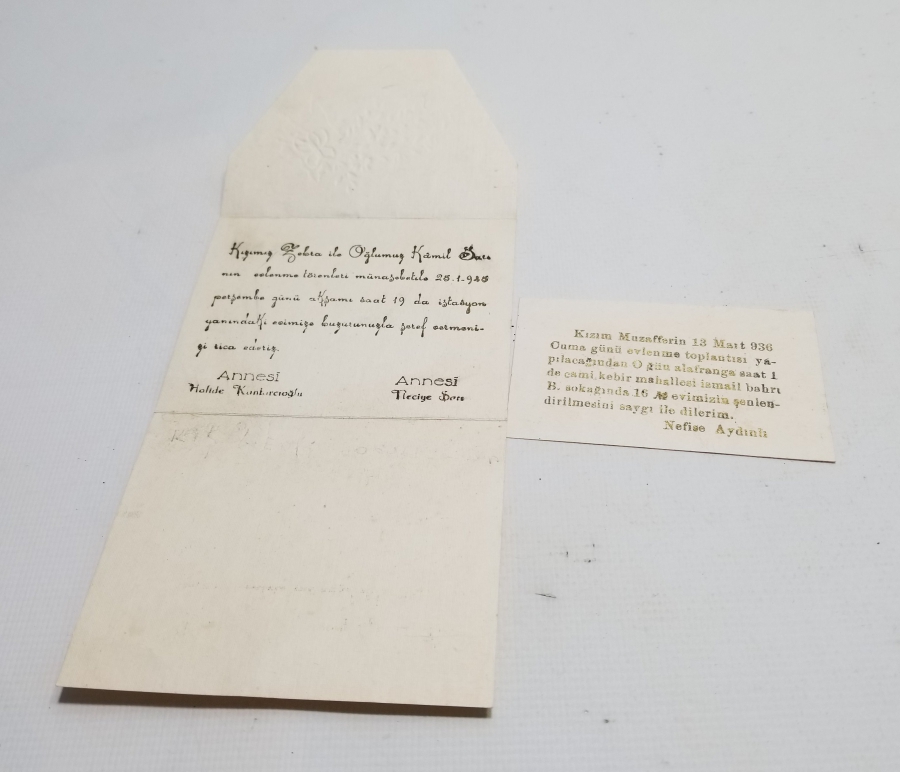 Kızımız Zehra ile Oğlumuz Kâmil Sarı
nın evlenme törenleri münasebetile 25.1.945
perşembe günü akşamı saat 19 da istasyon
yanındaki evimize huzurunuzla şeref vermeni-
zi rica ederiz.
Annesi
Halide Kantarcıoğlu
Annesi
Neciye Sarı
Kızım Muzafferin 13 Mart 936
Cuma günü evlenme toplantısı ya-
pılacağından O gün alafranga saat 1
de cami kebir mahallesi ismail bahri
B. sokağında 16 № evimizin şenlen-
dirilmesini saygı ile dilerim.
Nefise Aydınlı